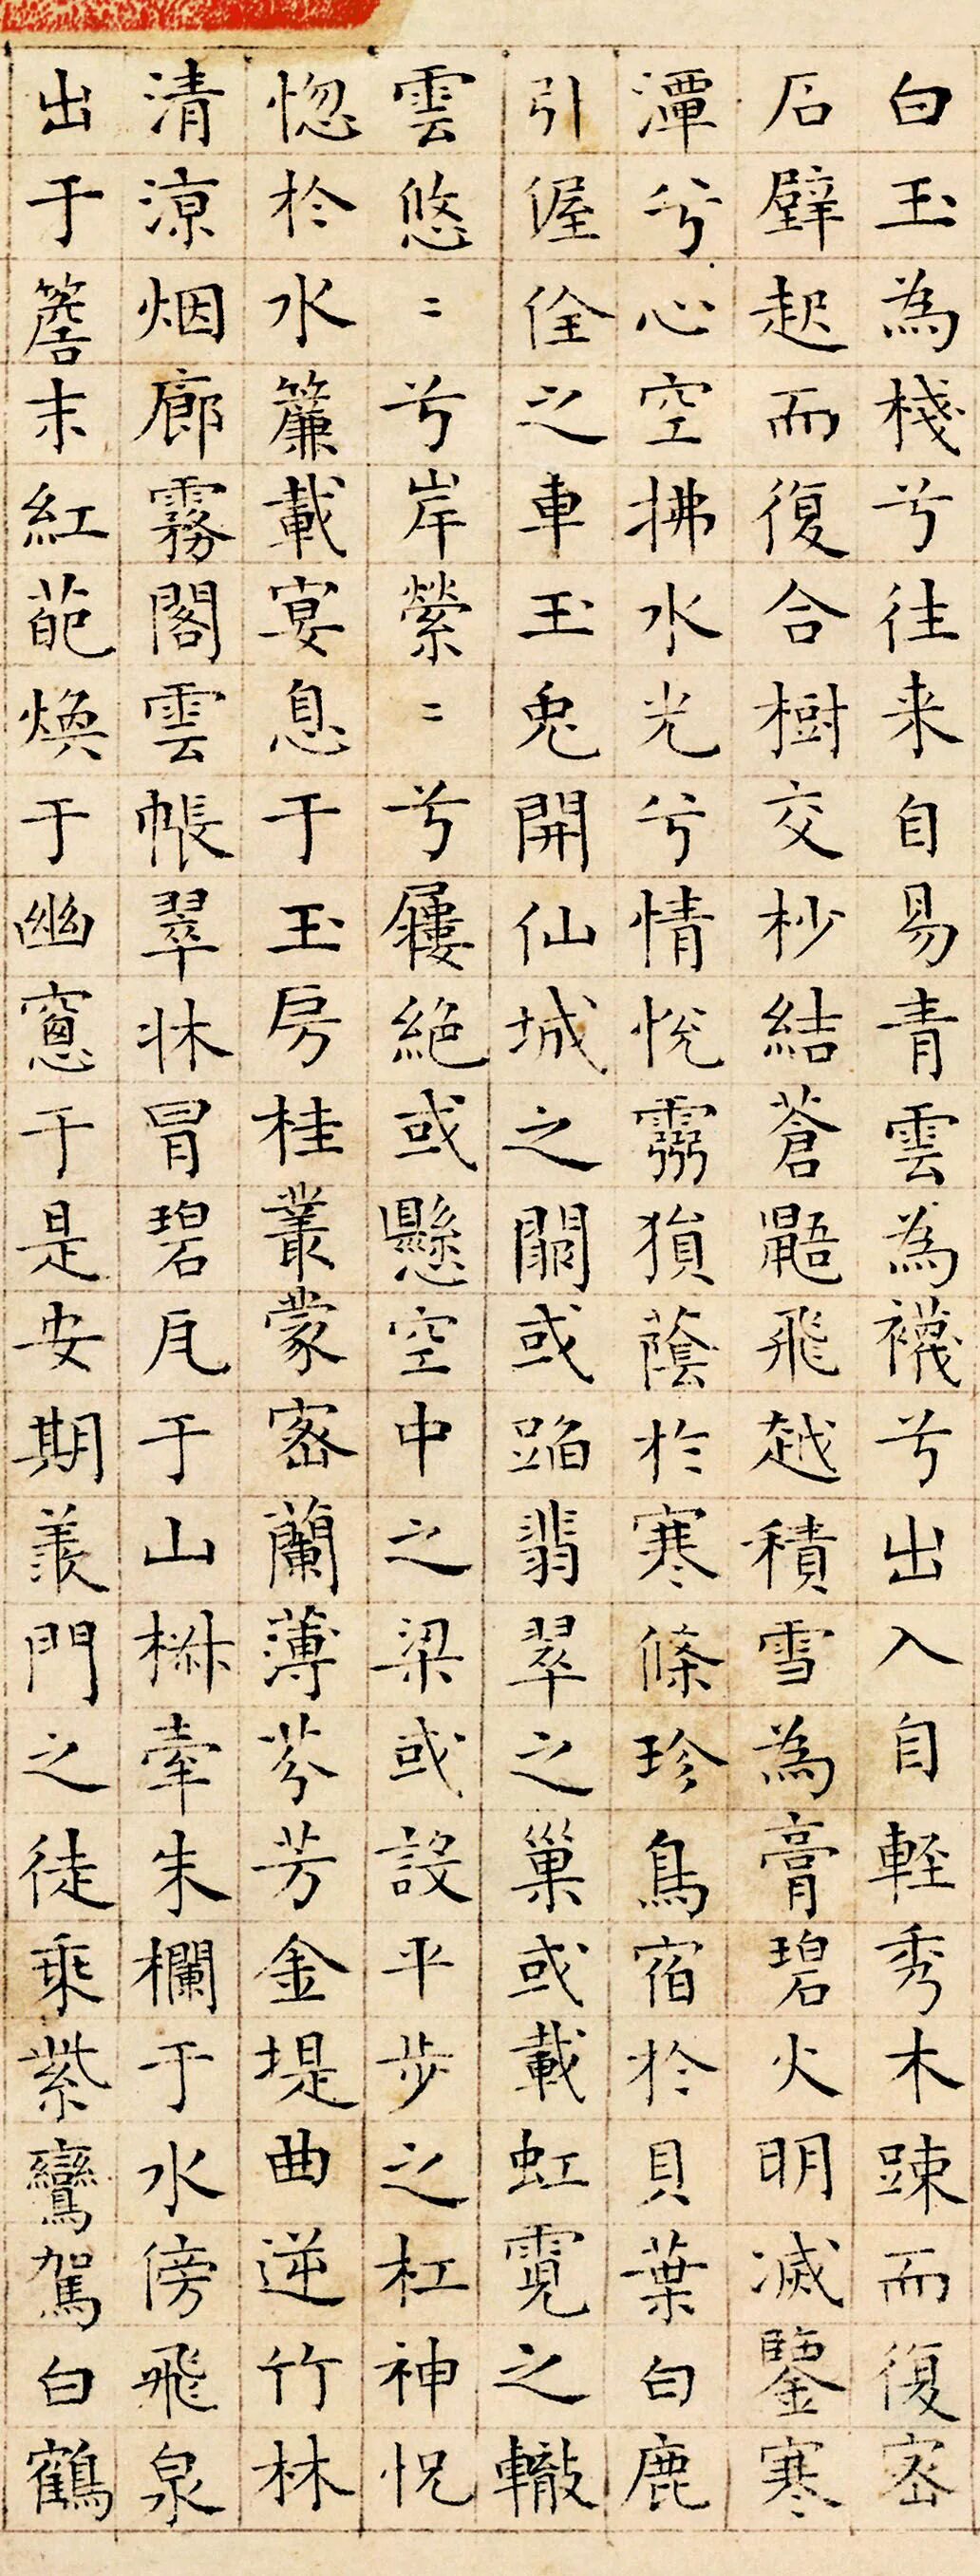 白玉為棧兮往来自易青雲為襪兮出入自軽秀木踈而復密
石壁起而復合樹交杪結蒼鼯飛越積雪為膏碧火明滅鑒寒
潭兮心空拂水光兮情悅霧猿蔭於寒條珍鳥宿於貝葉白鹿
引偓佺之車玉兔開仙城之關或蹈翡翠之巢或載虹霓之轍
雲悠〻兮岸縈〻兮屨絕或懸空中之梁或設平步之杠神怳
惚於水簾載宴息于玉房桂叢蒙密蘭薄芬芳金堤曲逆竹林
清涼烟廊霧閣雲帳翠牀冒碧瓦于山椒牽朱欄于水傍飛泉
出于簷末紅葩煥于幽窻于是安期羨門之徒乘紫鸞駕白鶴